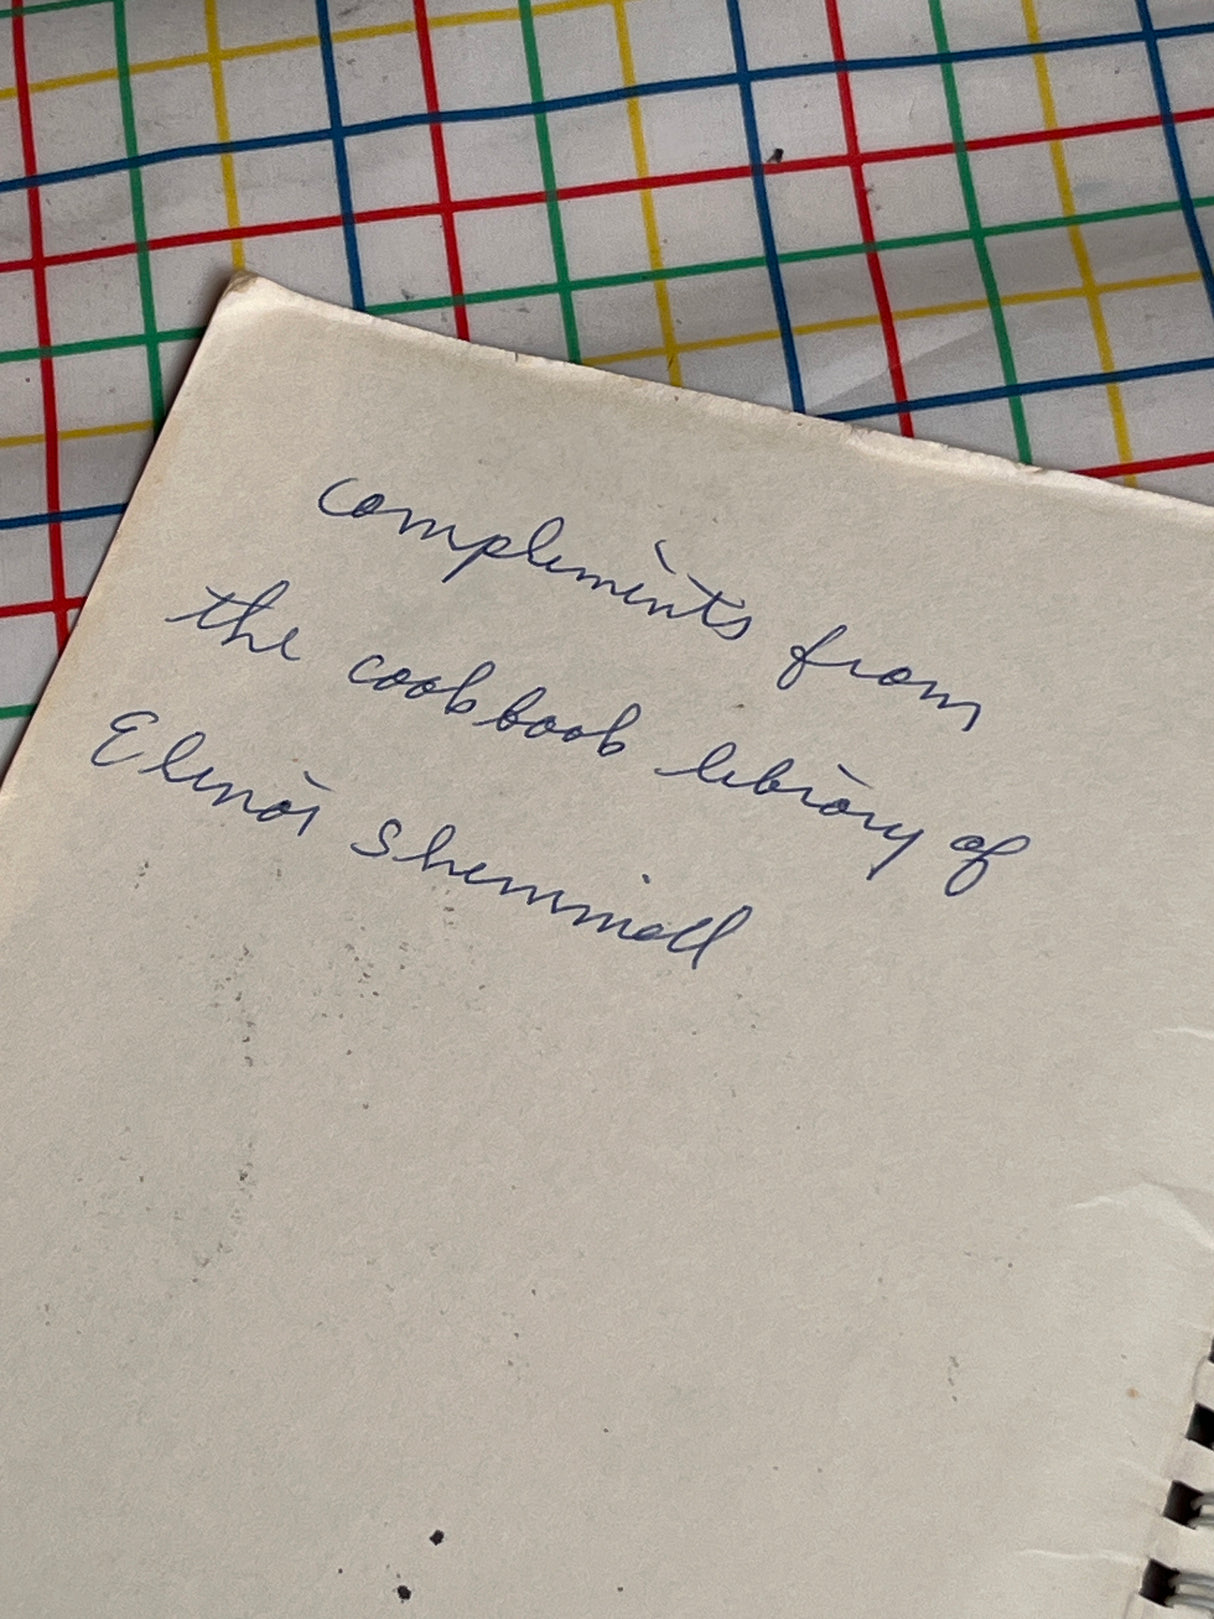 compliments from
the cookbook library of
Elinor Shemmell